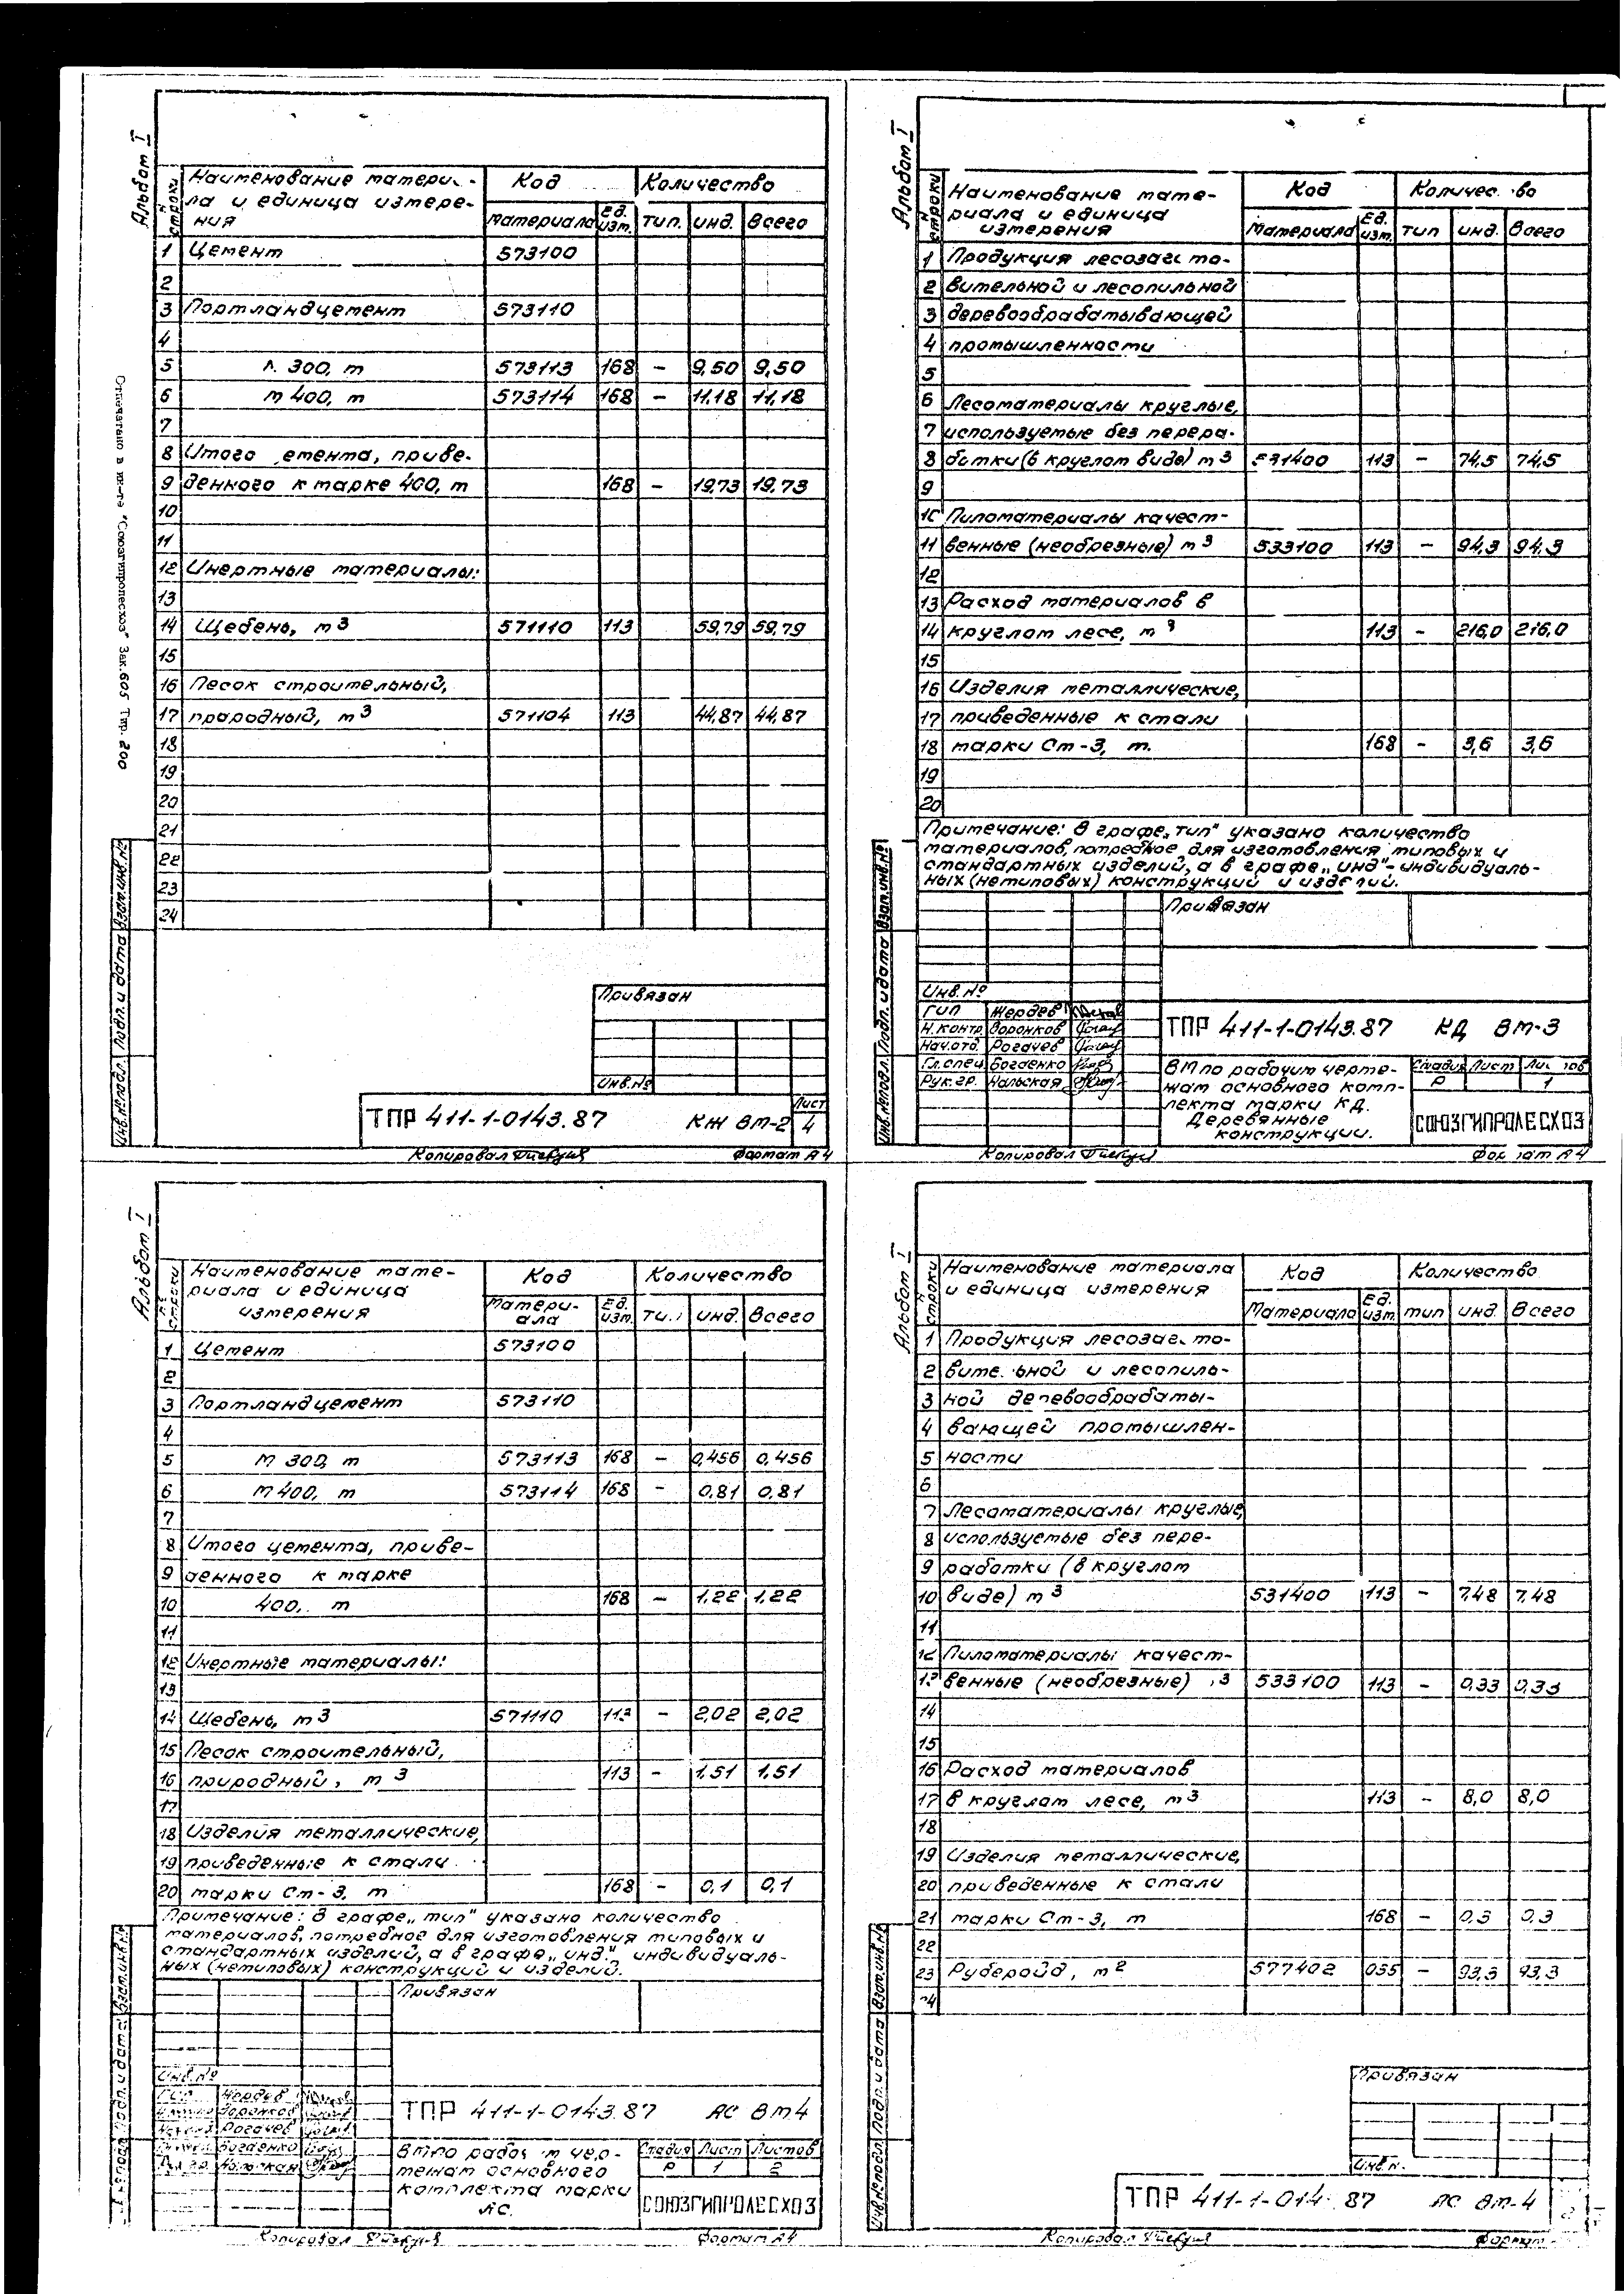 Альбом I
Наименование матери
ла и единица измере-
ния
№ строки
Код
Количество
материала
Ед. изм.
тип.
инд.
Всего
1 Цемент 573100
2
3 Портландцемент 573110
4
5 300, т 573113 168 – 9,50 9,50
6 м 400, т 573114 168 – 11,18 11,18
7
8 Итого емента, приве-
9 денного к марке 400, т 168 – 19,73 19,73
10
11
12 Инертные материалы:
13
14 Щебень, м3 571110 113 59,79 59,79
15
16 Песок строительный,
17 прародный, м3 571104 113 44,87 44,87
18
19
20
21
22
23
24
Отпечатано в ин-те "Союзгипролесхоз" Зак. 605 Тир. 200
Инв.№ подл. Подп. и дата Взам.инв.№
Привязан
Инв.№
ТПР 411-1-0143.87 КЖ ВМ-2
Лист
4
Копировал
Формат А4
Альбом I
№ строки
Наименование мате-
риала и единица
измерения
Код
Количес во
Материала
Ед. изм.
тип
инд.
Всего
1 Продукция лесозаг то-
2 вительной и лесопильной
3 деревообрабатывающей
4 промышленности
5
6 Лесоматериалы круглые,
7 используемые без перера-
8 ботки (в круглом виде) м3 531400 113 – 74,5 74,5
9
10 Пиломатериалы качест-
11 венные (необрезные) м3 533100 113 – 94,3 94,3
12
13 Расход материалов в
14 круглом лесе, м3 113 – 216,0 216,0
15
16 Изделия металлические,
17 приведенные к стали
18 марки Ст-3, т. 168 – 3,6 3,6
19
20
Примечание: В графе „тип" указано количество
материалов, потребное для изготовления типовых и
стандартных изделий, а в графе „инд"-индивидуаль-
ных (нетиповых) конструкций и изделий.
Инв.№ подл. Подп. и дата Взам.инв.№
Привязан
Инв.№
ГИП Жердев
Н.контр. Воронков
Нач.отд. Рогачев
Гл.спец. Богаенко
Рук.гр. Нальская
ТПР 411-1-0143.87 КД ВМ-3
ВМ по рабочим черте-
жам основного комп-
лекта марки КД.
Деревянные
конструкции.
Стадия Лист Лис тов
Р 1
СОЮЗГИПРОЛЕСХОЗ
Копировал
Фор мат А4
Альбом I
№ строки
Наименование мате-
риала и единица
измерения
Код
Количество
Матери-
ала
Ед. изм.
ти
инд.
Всего
1 Цемент 573100
2
3 Портландцемент 573110
4
5 м 300, т 573113 168 – 0,456 0,456
6 м 400, т 573114 168 – 0,81 0,81
7
8 Итого цемента, приве-
9 денного к марке
10 400, т 168 – 1,22 1,22
11
12 Инертные материалы:
13
14 Щебень, м3 571110 113 – 2,02 2,02
15 Песок строительный,
16 природный, м3 113 – 1,51 1,51
17
18 Изделия металлические,
19 приведенные к стали
20 марки Ст-3, т 168 – 0,1 0,1
Примечание: В графе „тип" указано количество
материалов, потребное для изготовления типовых и
стандартных изделий, а в графе „инд." индивидуаль-
ных (нетиповых) конструкций и изделий.
Подп. и дата Взам.инв.№
Привязан
Инв.№
Жердев
Воронков
Рогачев
Богаенко
Нальская
ТПР 411-1-0143.87 АС ВМ4
ВМ по рабоч м чер-
тежам основного
комплекта марки
АС.
Стадия Лист Листов
Р 1 2
СОЮЗГИПРОЛЕСХОЗ
Копировал
Формат А4
Альбом I
№ строки
Наименование материала
и единица измерения
Код
Количество
Материала
Ед. изм.
тип
инд.
Всего
1 Продукция лесозаг то-
2 вите ьной и лесопиль-
3 ной деревообрабаты-
4 вающей промышлен-
5 ности
6
7 Лесоматериалы круглые,
8 используемые без пере-
9 работки (в круглом
10 виде) м3 531400 113 – 7,48 7,48
11
12 Пиломатериалы качест-
13 венные (необрезные) , 3 533100 113 – 0,33 0,33
14
15
16 Расход материалов
17 в круглом лесе, м3 113 – 8,0 8,0
18
19 Изделия металлические,
20 приведенные к стали
21 марки Ст-3, т 168 – 0,3 0,3
22
23 Рубероид, м2 577402 055 – 93,3 93,3
24
Инв.№ подл. Подп. и дата Взам.инв.№
Привязан
Инв.№
ТПР 411-1-014 87 АС ВМ-4
Копировал
Формат